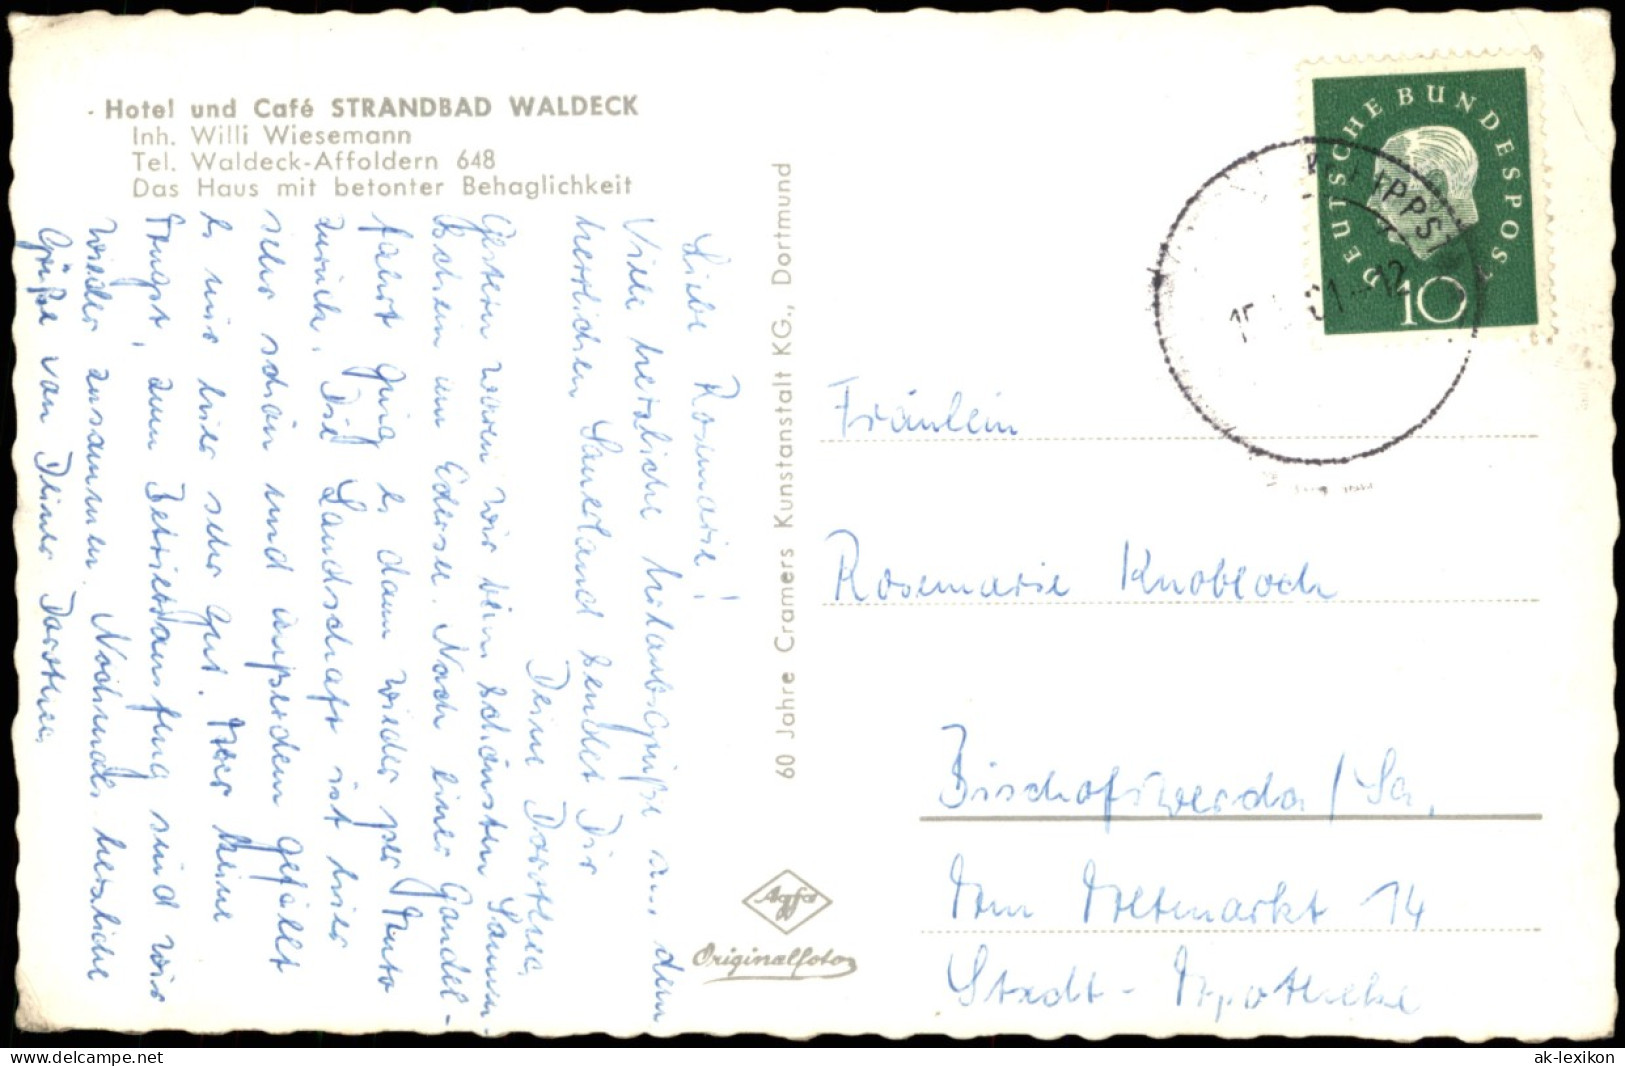 Hotel und Café STRANDBAD WALDECK
Inh. Willi Wiesemann
Tel. Waldeck-Affoldern 648
Das Haus mit betonter Behaglichkeit
Liebe Rosemarie!
Viele herzliche Urlaubsgrüße aus dem
herrlichen Sauerland sendet Dir
Deine Dorothea
Gestern waren wir beim schönsten Sonnen-
schein am Edersee. Nach einer Gondel-
fahrt ging es dann wieder per Auto
zurück. Die Landschaft ist hier
sehr schön und außerdem gefällt
es mir hier sehr gut. Aber keine
Angst, zum Betriebsausflug sind wir
wieder zusammen. Nochmals herzliche
Grüße von Deiner Dorothea
60 Jahre Cramers Kunstanstalt KG., Dortmund
Agfa
Originalfoto
DEUTSCHE BUNDESPOST
10
-12
Fräulein
Rosemarie Knobloch
Bischofswerda / Sa.
Am Altmarkt 14
Stadt-Apotheke
ak-lexikon
www.delcampe.net